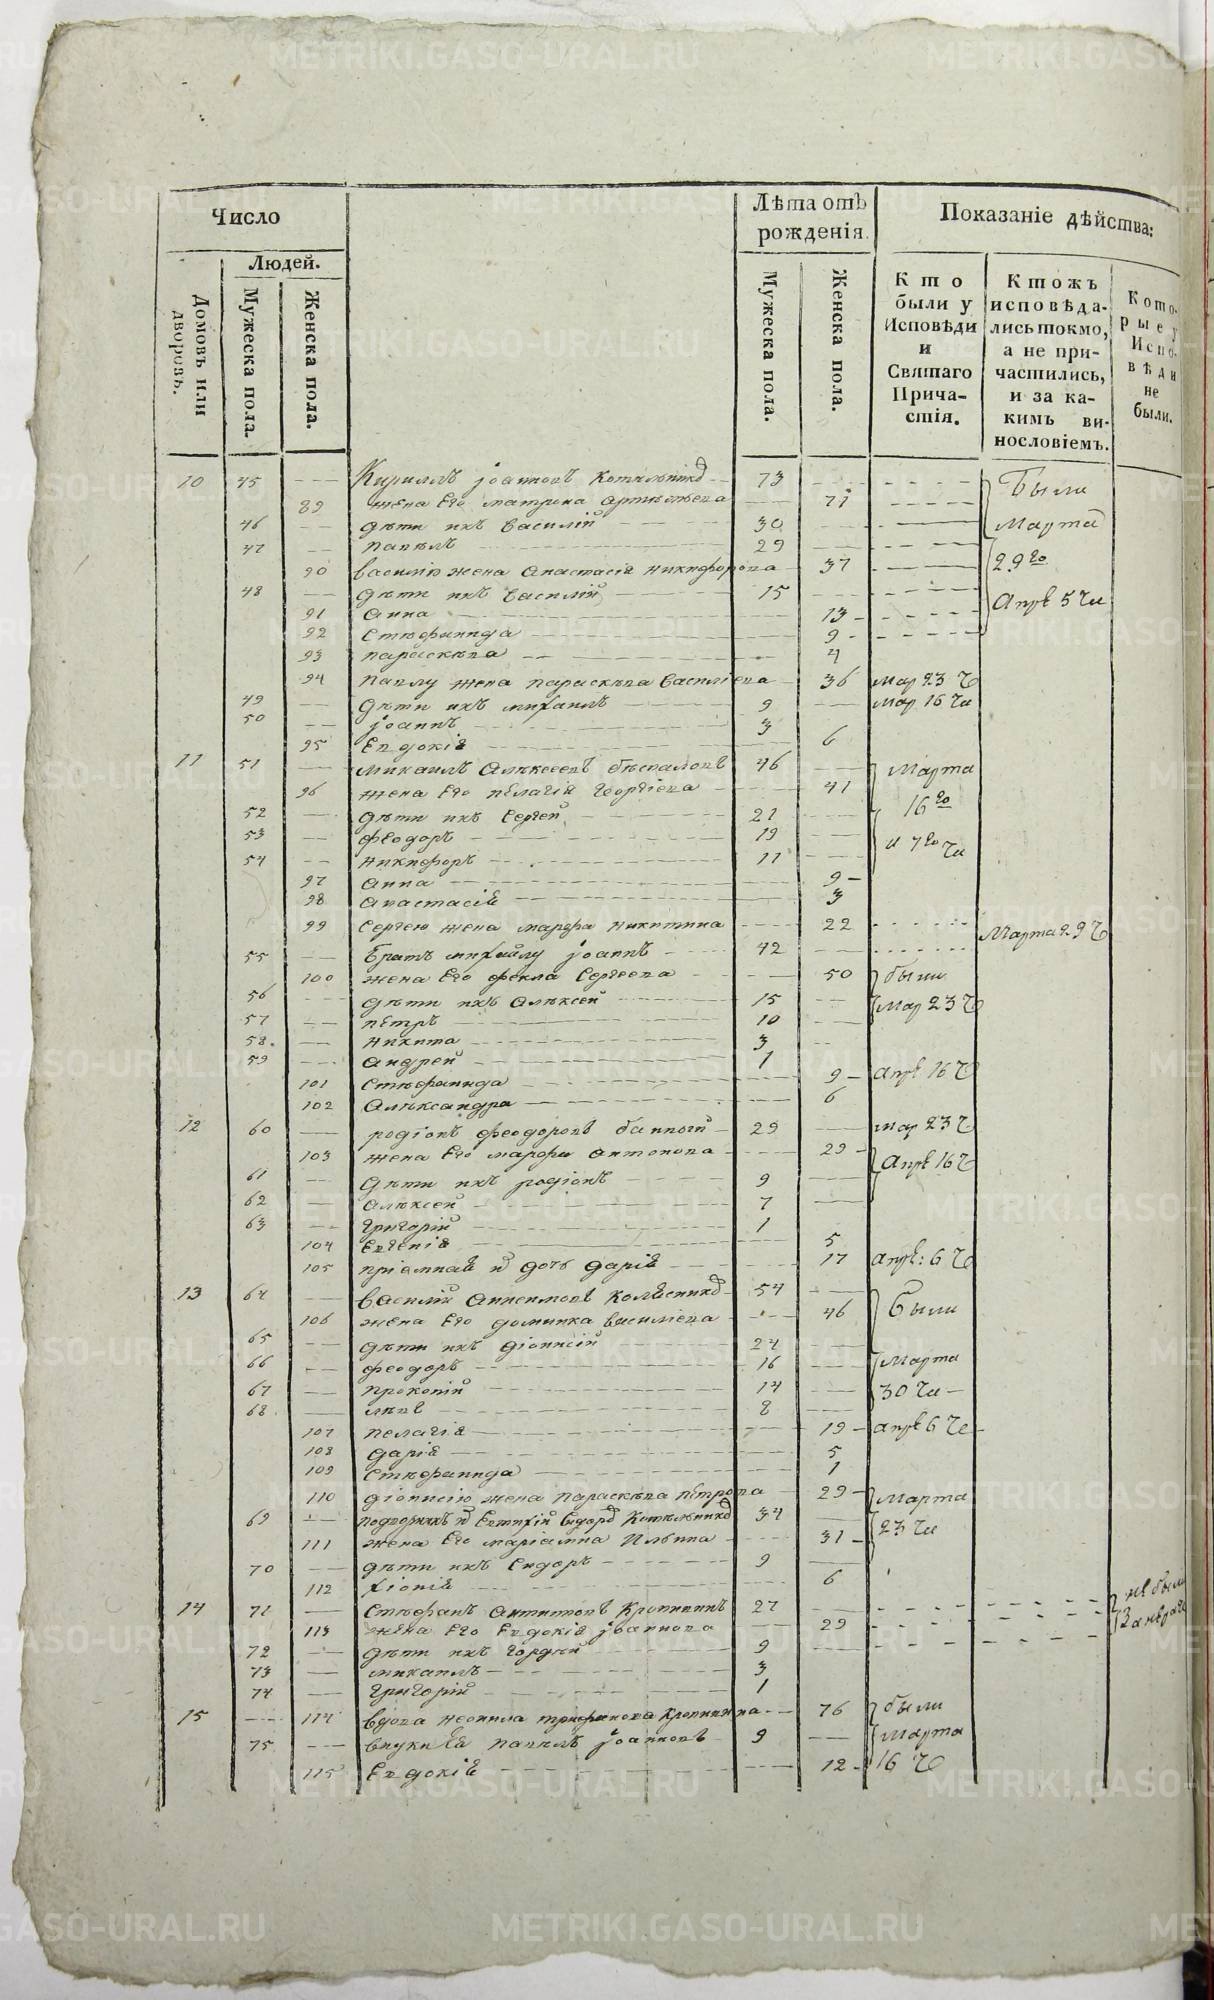 Число
Лѣта отъ рожденія.
Показаніе дѣйства:
Людей.
Домовъ или дворовъ.
Мужеска пола.
Женска пола.
Мужеска пола.
Женска пола.
Кто были у Исповѣди и Святаго Причастія.
Ктожъ исповѣдались токмо, а не причастились, и за какимъ винословіемъ.
Которые у Исповѣди не были.
10 45 Кириллъ Iоанновъ Котельниковъ 73 Были
89 жена Его матрона Артемьева 71
46 дѣти ихъ василій 30 Марта
47 павелъ 29
90 василію жена Анастасія никифорова 37 29го
48 дѣти ихъ василій 15
91 Анна 13 Апрѣ 5 чи
92 Стефанида 9
93 параскева 4
94 павлу жена параскева василіева 36 мар 23 ч
49 дѣти ихъ михаилъ 9 мар 16 чи
50 Iоаннъ 3
95 Евдокія 6
11 51 михаилъ Алексеевъ безпаловъ 46 Марта
96 жена Его пелагія Георгіева 41 16го
52 дѣти ихъ Сергей 21
53 феодоръ 19 и 7го чи
54 никифоръ 11
97 Анна 9
98 Анастасія 3
99 Сергею жена марфа никитина 22 Марта 29 ч
55 братъ михайлу Iоаннъ 42
100 жена Его фекла Сергеева 50 были
56 дѣти ихъ Алексей 15 Мар 23 ч
57 петръ 10
58. никита 3
59 Андрей 1
101 Стефанида 9 Апрѣ 16 ч
102 Александра 6
12 60 родіонъ феодоровъ банной 29 мар 23 ч
103 жена Его марфа антонова 29 Апрѣ 16 ч
61 дѣти ихъ родіонъ 9
62 Алексей 7
63 Григорій 1
104 Евгенія 5
105 пріемная дочь дарія 17 апрѣ: 6 ч
13 64 василій Анисимовъ Колѣсниковъ 54
106 жена Его домника василіева 46 Были
65 дѣти ихъ діонисій 24
66 феодоръ 16 Марта
67 прокопій 14 30 чи
68 левъ 8
107 пелагія 19 апрѣ 6 че
108 дарія 5
109 Стефанида 1
110 діонисію жена параскева петрова 29 Марта
69 Евтихій Сидоровъ Котельниковъ 34 23 чи
111 жена Его маріамна Ильина 31
70 дѣти ихъ Сидоръ 9
112 хіонія 6
14 71 Стефанъ Антиповъ Кропининъ 27 не были
113 жена Его Евдокія Iоаннова 29
72 дѣти ихъ Гордей 9
73 михаилъ 3
74 Григорій 1
15 114 вдова неонила трифонова Кропинина 76 были
75 внуки Ея павелъ Iоанновъ 9 Марта
115 Евдокія 12 16 ч
METRIKI.GASO-URAL.RU